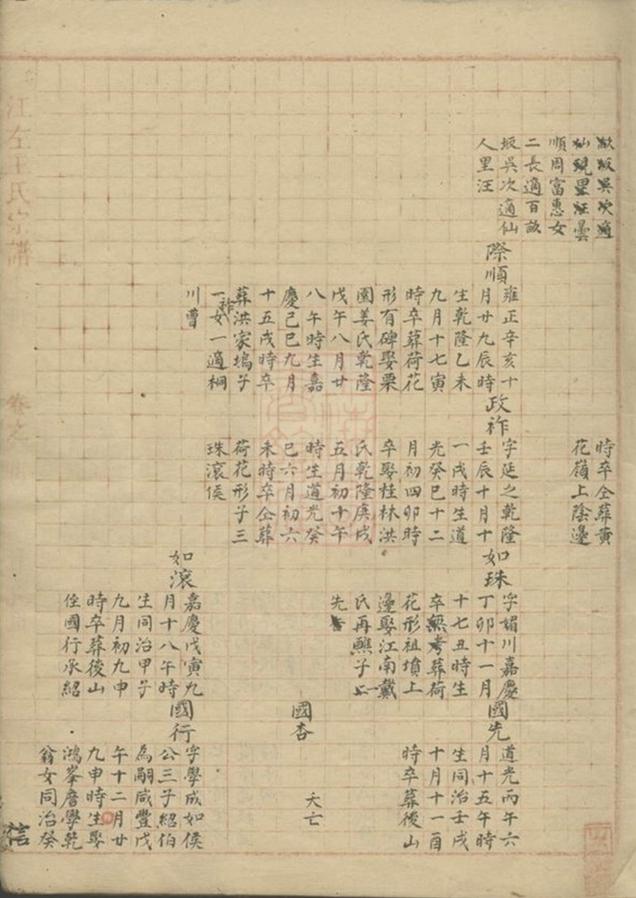 歙坂吳次適
仙硯里汪曇
順周富惠女
二長適百畝
坂吳次適仙
人里汪
際順
雍正辛亥十
月廿九辰時
生乾隆乙未
九月十七寅
時卒葬荷花
形有碑娶栗
園姜氏乾隆
戊午八月廿
八午時生嘉
慶己巳九月
十五戌時卒
葬洪家塢子
一祚女一適桐
川曹
時卒仝葬黄
花嶺上陰邊
政祚
字延之乾隆
壬辰十月十
一戌時生道
光癸巳十二
月初四卯時
卒娶桂林洪
氏乾隆庚戌
五月初十午
時生道光癸
巳六月初六
未時卒仝葬
荷花形子三
珠滾侯
如珠
字媚川嘉慶
丁卯十一月
十七丑時生
卒無考葬荷
花形祖墳上
邊娶江南戴
氏再熙子二
先
如滾
嘉慶戊寅九
月十八午時
生同治甲子
九月初九申
時卒葬後山
侄國行承紹
國先
道光丙午六
月十五午時
生同治壬戌
十月十一酉
時卒葬後山
國杏
夭亡
國行
字學成如侯
公三子紹伯
為嗣咸豐戊
午十二月廿
九申時生娶
鴻峯詹學乾
翁女同治癸
江左王氏宗譜
卷之
信